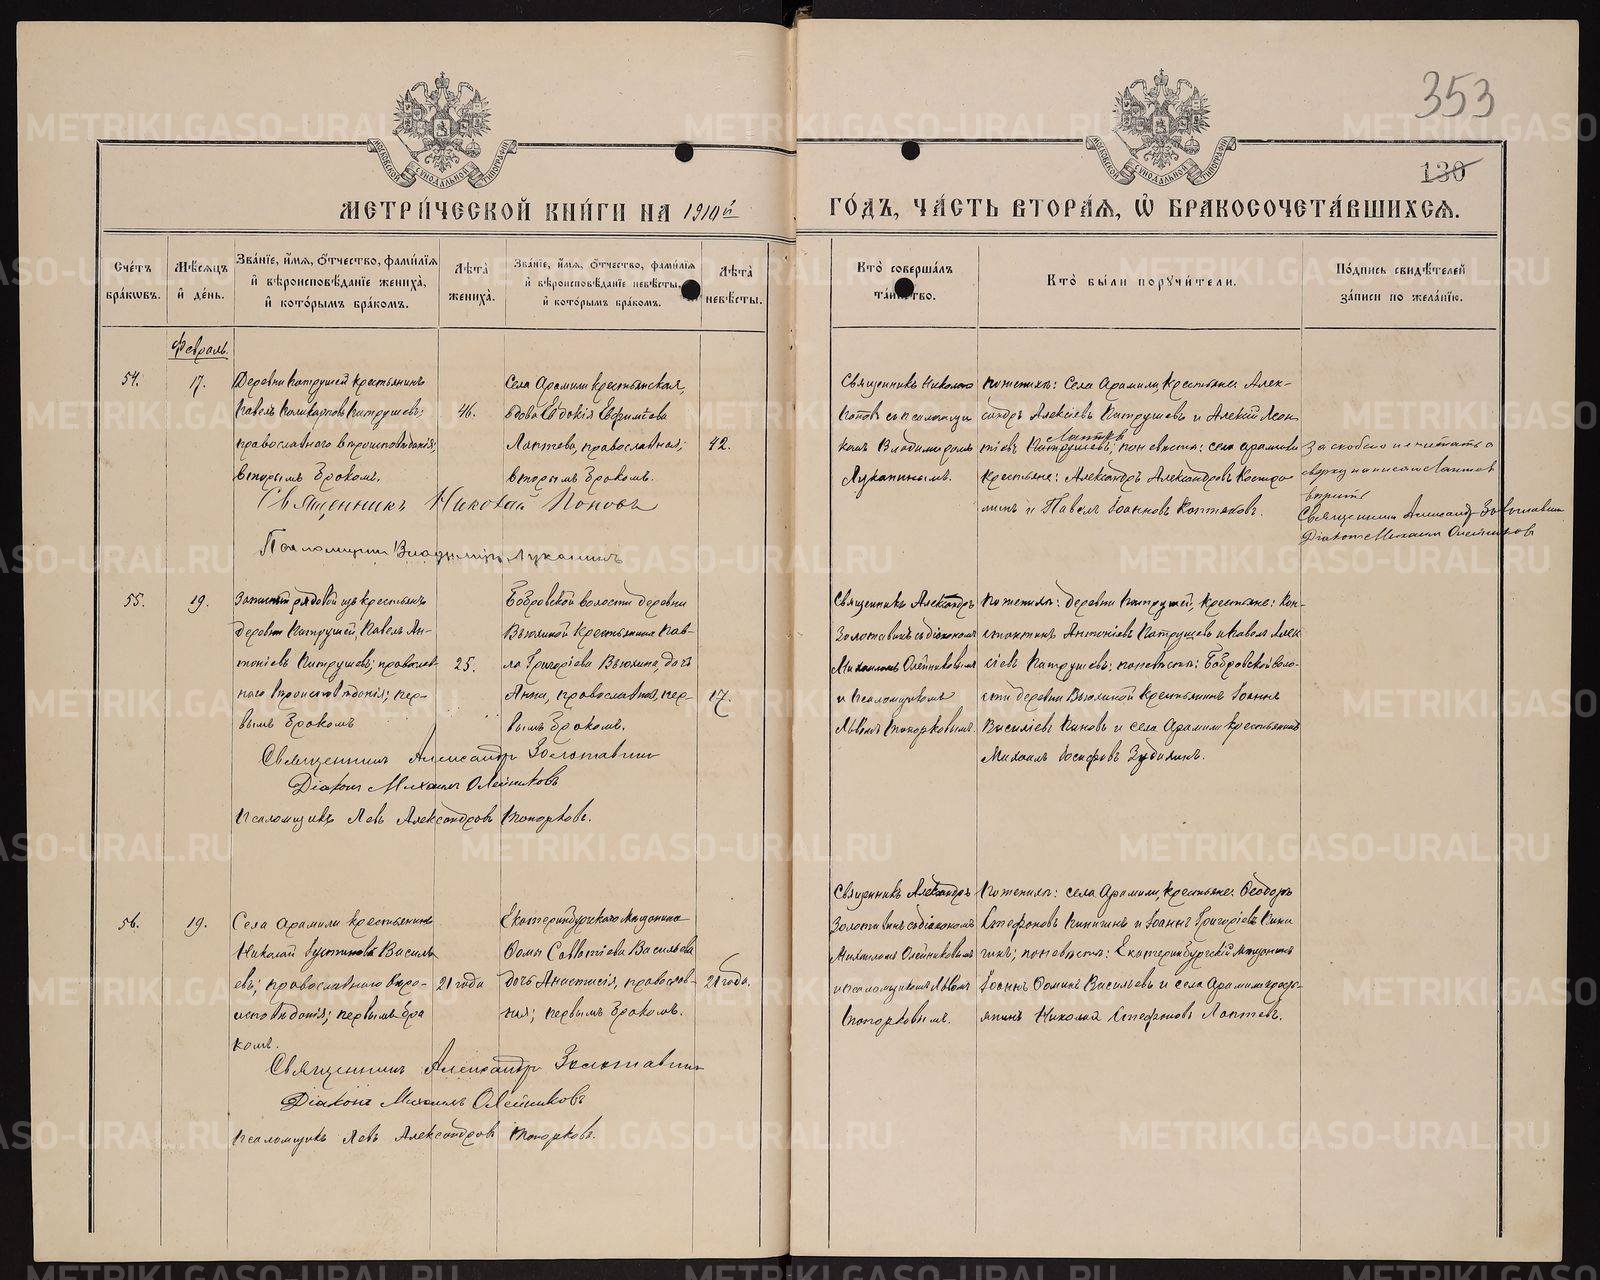 353
130
МОСКОВСКОЙ СѴНОДАЛЬНОЙ ТИПОГРАФІИ
МОСКОВСКОЙ СѴНОДАЛЬНОЙ ТИПОГРАФІИ
МЕТРИ́ЧЕСКОЙ КНИ́ГИ НА 1910й
ГО́ДЪ, ЧА́СТЬ ВТОРА́Я, Ѽ БРАКОСОЧЕТА́ВШИХСЯ.
Сче́тъ бра́кѡвъ.
Мѣ́сяцъ и де́нь.
Зва́нїе, и́мя, ѻ́тчество, фами́лїя и вѣроисповѣ́данїе жениха̀, и кото́рымъ бра́комъ.
Лѣ́та жениха̀.
Зва́нїе, и́мя, ѻ́тчество, фами́лїя и вѣроисповѣ́данїе невѣ́сты, и кото́рымъ бра́комъ.
Лѣ́та невѣ́сты.
Кто̀ соверша́лъ та́инство.
Кто̀ бы́ли поручи́тели.
По́дпись свидѣ́телей за́писи по жела́нїю.
Февраль.
54.
17.
Деревни Патрушей крестьянинъ
Павелъ Поликарповъ Патрушевъ;
православнаго вѣроисповѣданія;
вторымъ бракомъ.
46.
Села Арамили крестьянская
вдова Евдокія Евфиміева
Лаптева, православная;
вторымъ бракомъ.
42.
Священникъ Николай
Поповъ съ псаломщи
комъ Владиміромъ
Лукапинымъ.
По женихѣ: села Арамили, крестьяне Алек-
сандръ Алексіевъ Патрушевъ и Алексій Леон
Лаптевъ
тіевъ Патрушевъ; по невѣстѣ: села Арамили
крестьяне: Александръ Александровъ
и Павелъ Іоанновъ
За скобкою не читать а
сверху написан Лаптевъ
вѣрить
Священникъ Александръ Золотавинъ
Діаконъ Михаилъ Олейниковъ
Священникъ Николай Поповъ
Псаломщикъ Владиміръ Лукапинъ
55.
19.
Запасный рядовой изъ крестьянъ
деревни Патрушей, Павелъ Ан-
тоніевъ Патрушевъ; православ
наго вѣроисповѣданія; пер-
вымъ бракомъ
25.
Бобровской волости деревни
Вьюхиной крестьянина Пав-
ла Григоріева Вьюхина, дочь
Анна, православная, пер-
вымъ бракомъ.
17.
Священникъ Александръ
Золотавинъ съ діакономъ
Михаиломъ Олейниковымъ
и псаломщикомъ
Львомъ Топорковымъ.
По женихѣ: деревни Патрушей, крестьяне: Кон-
стантинъ Антоніевъ Патрушевъ и Павелъ Алек
сіевъ Патрушевъ; по невѣстѣ: Бобровской воло-
сти деревни Вьюхиной крестьянинъ Іоаннъ
Василіевъ Пановъ и села Арамили крестьянинъ
Михаилъ Іосифовъ Зудихинъ.
Священникъ Александръ Золотавинъ
Діаконъ Михаилъ Олейниковъ
Псаломщикъ Левъ Александровъ Топорковъ.
56.
19.
Села Арамили крестьянинъ
Николай Іустиновъ Василь
евъ; православнаго вѣро-
исповѣданія; первымъ бра
комъ.
21 года
Екатеринбургскаго мѣщанина
Ѳомы Савватіева Васильева
дочь Анастасія, православ-
ная; первымъ бракомъ.
21 года.
Священникъ Александръ
Золотавинъ съ діакономъ
Михаиломъ Олейниковымъ
и псаломщикомъ Львомъ
Топорковымъ.
По женихѣ: села Арамили, крестьяне: Ѳеодоръ
Стефановъ Кичигинъ и Іоаннъ Григоріевъ Кичи
гинъ; по невѣстѣ: Екатеринбургскій мѣщанинъ
Іоаннъ Ѳоминъ Васильевъ и села Арамили кресть-
янинъ Николай Стефановъ Лаптевъ.
Священникъ Александръ Золотавинъ
Діаконъ Михаилъ Олейниковъ
Псаломщикъ Левъ Александровъ Топорковъ.
METRIKI.GASO-URAL.RU